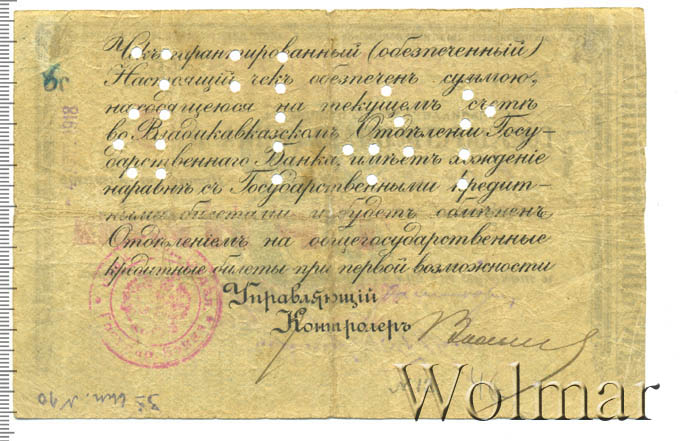 Чекъ гарантированный (обезпеченный)
Настоящій чекъ обезпеченъ суммою,
находящеюся на текущемъ счетѣ
во Владикавказскомъ Отдѣленіи Госу-
дарственнаго Банка, имѣетъ хожденіе
наравнѣ съ Государственными кредит-
ными билетами и будетъ обмѣненъ
Отдѣленіемъ на общегосударственные
кредитные билеты при первой возможности
Управляющій
Контролеръ
1918
Wolmar